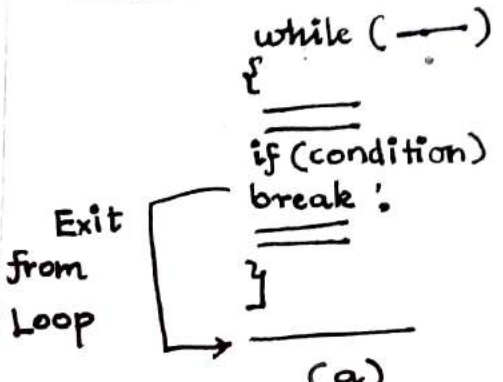 while ( — )
{
if (condition)
break ;
Exit
from
Loop
}
(a)